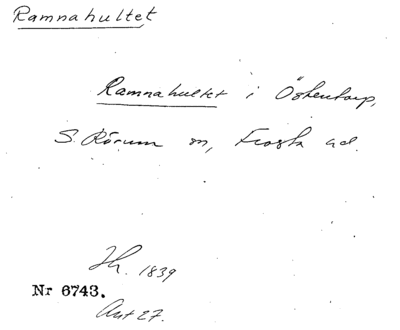 Ramnahultet
Ramnahultet i Östentorp,
S. Rörum sn, Frosta hd.
Jh. 1839
Nr 6743.
Akt 27.